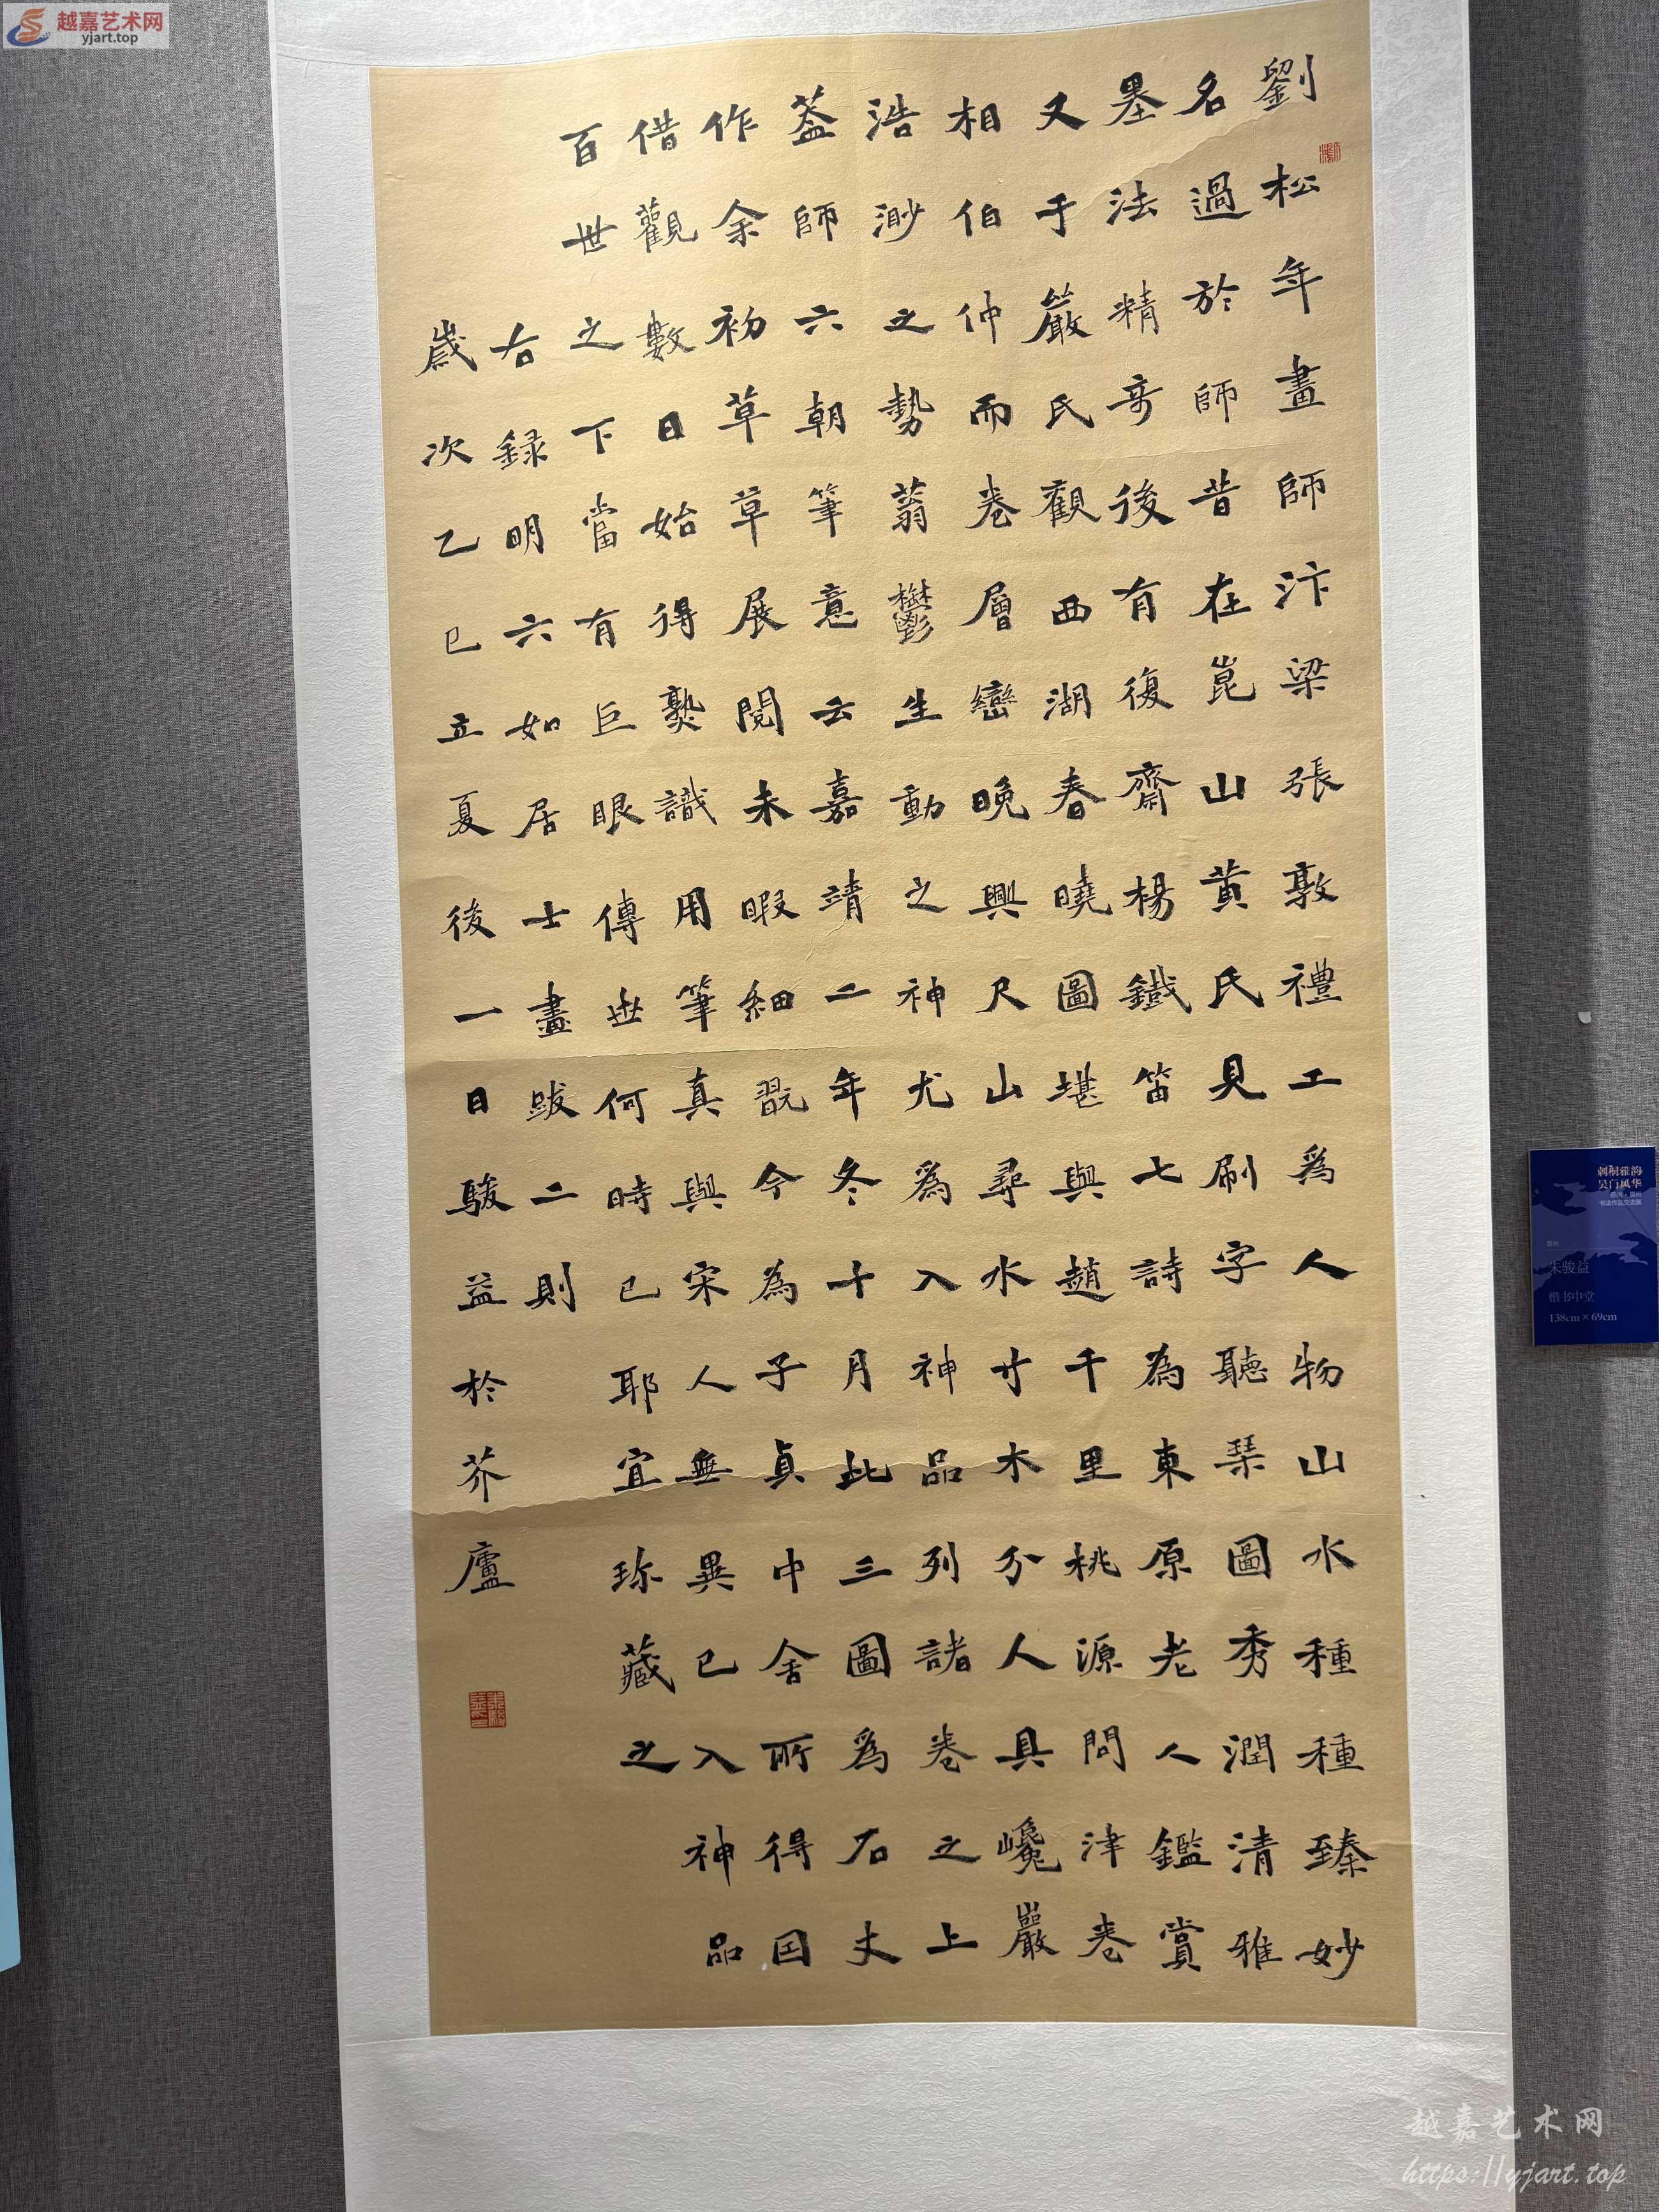 越嘉艺术网
yjart.top
劉松年畫師汴梁張敦禮工為人物山水種種臻妙
名過於師昔在崑山黄氏見刷字聽琹圖秀潤清雅
墨法精奇後有復齋楊鐵笛七詩為東原老人鑑賞
又于嚴氏觀西湖春曉圖堪與趙千里桃源問津卷
相伯仲而卷層巒晚興尺山尋水寸木分人具巉巖
浩渺之勢蓊鬱生動之神尤為入神品列諸卷之上
葢師六朝筆意云嘉靖二年冬十月此三圖為石丈
作余初草草展閱未暇細翫今為子貞中舍所得因
借觀數日始得熟識用筆真與宋人無異已入神品
百世之下當有巨眼傳世何時已耶宜珎藏之
右録明六如居士畫跋二則
歲次乙巳立夏後一日駿益於芥廬
刺桐雅韵
吴门风华
书法作品交流展
朱骏益
楷书中堂
138cm×69cm
越嘉艺术网
https://yjart.top